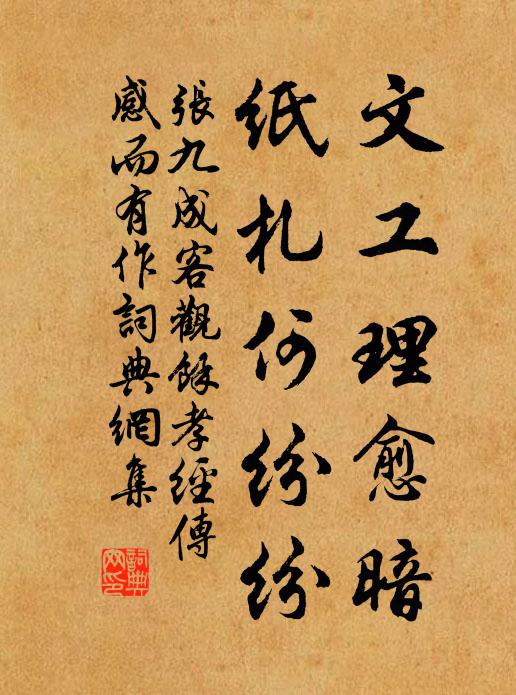 文工理愈暗
紙札何紛紛
張九成客觀餘孝經傳
感而有作詞典網集
詞典
网印